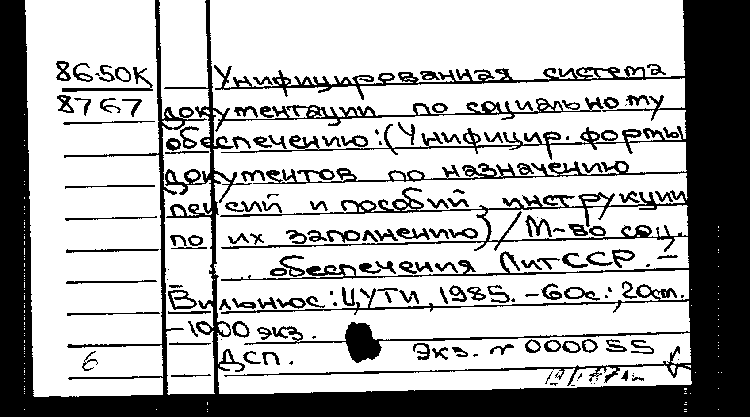 86-50К Унифицированная система
8767 документации по социальному
обеспечению: (Унифицир. формы
документов по назначению
пенсий и пособий, инструкции
по их заполнению) / М-во соц.
обеспечения ЛитССР. –
Вильнюс: ЦУТИ, 1985. – 60с.; 20см.
– 1000 экз.
6 ДСП. Экз. № 000055